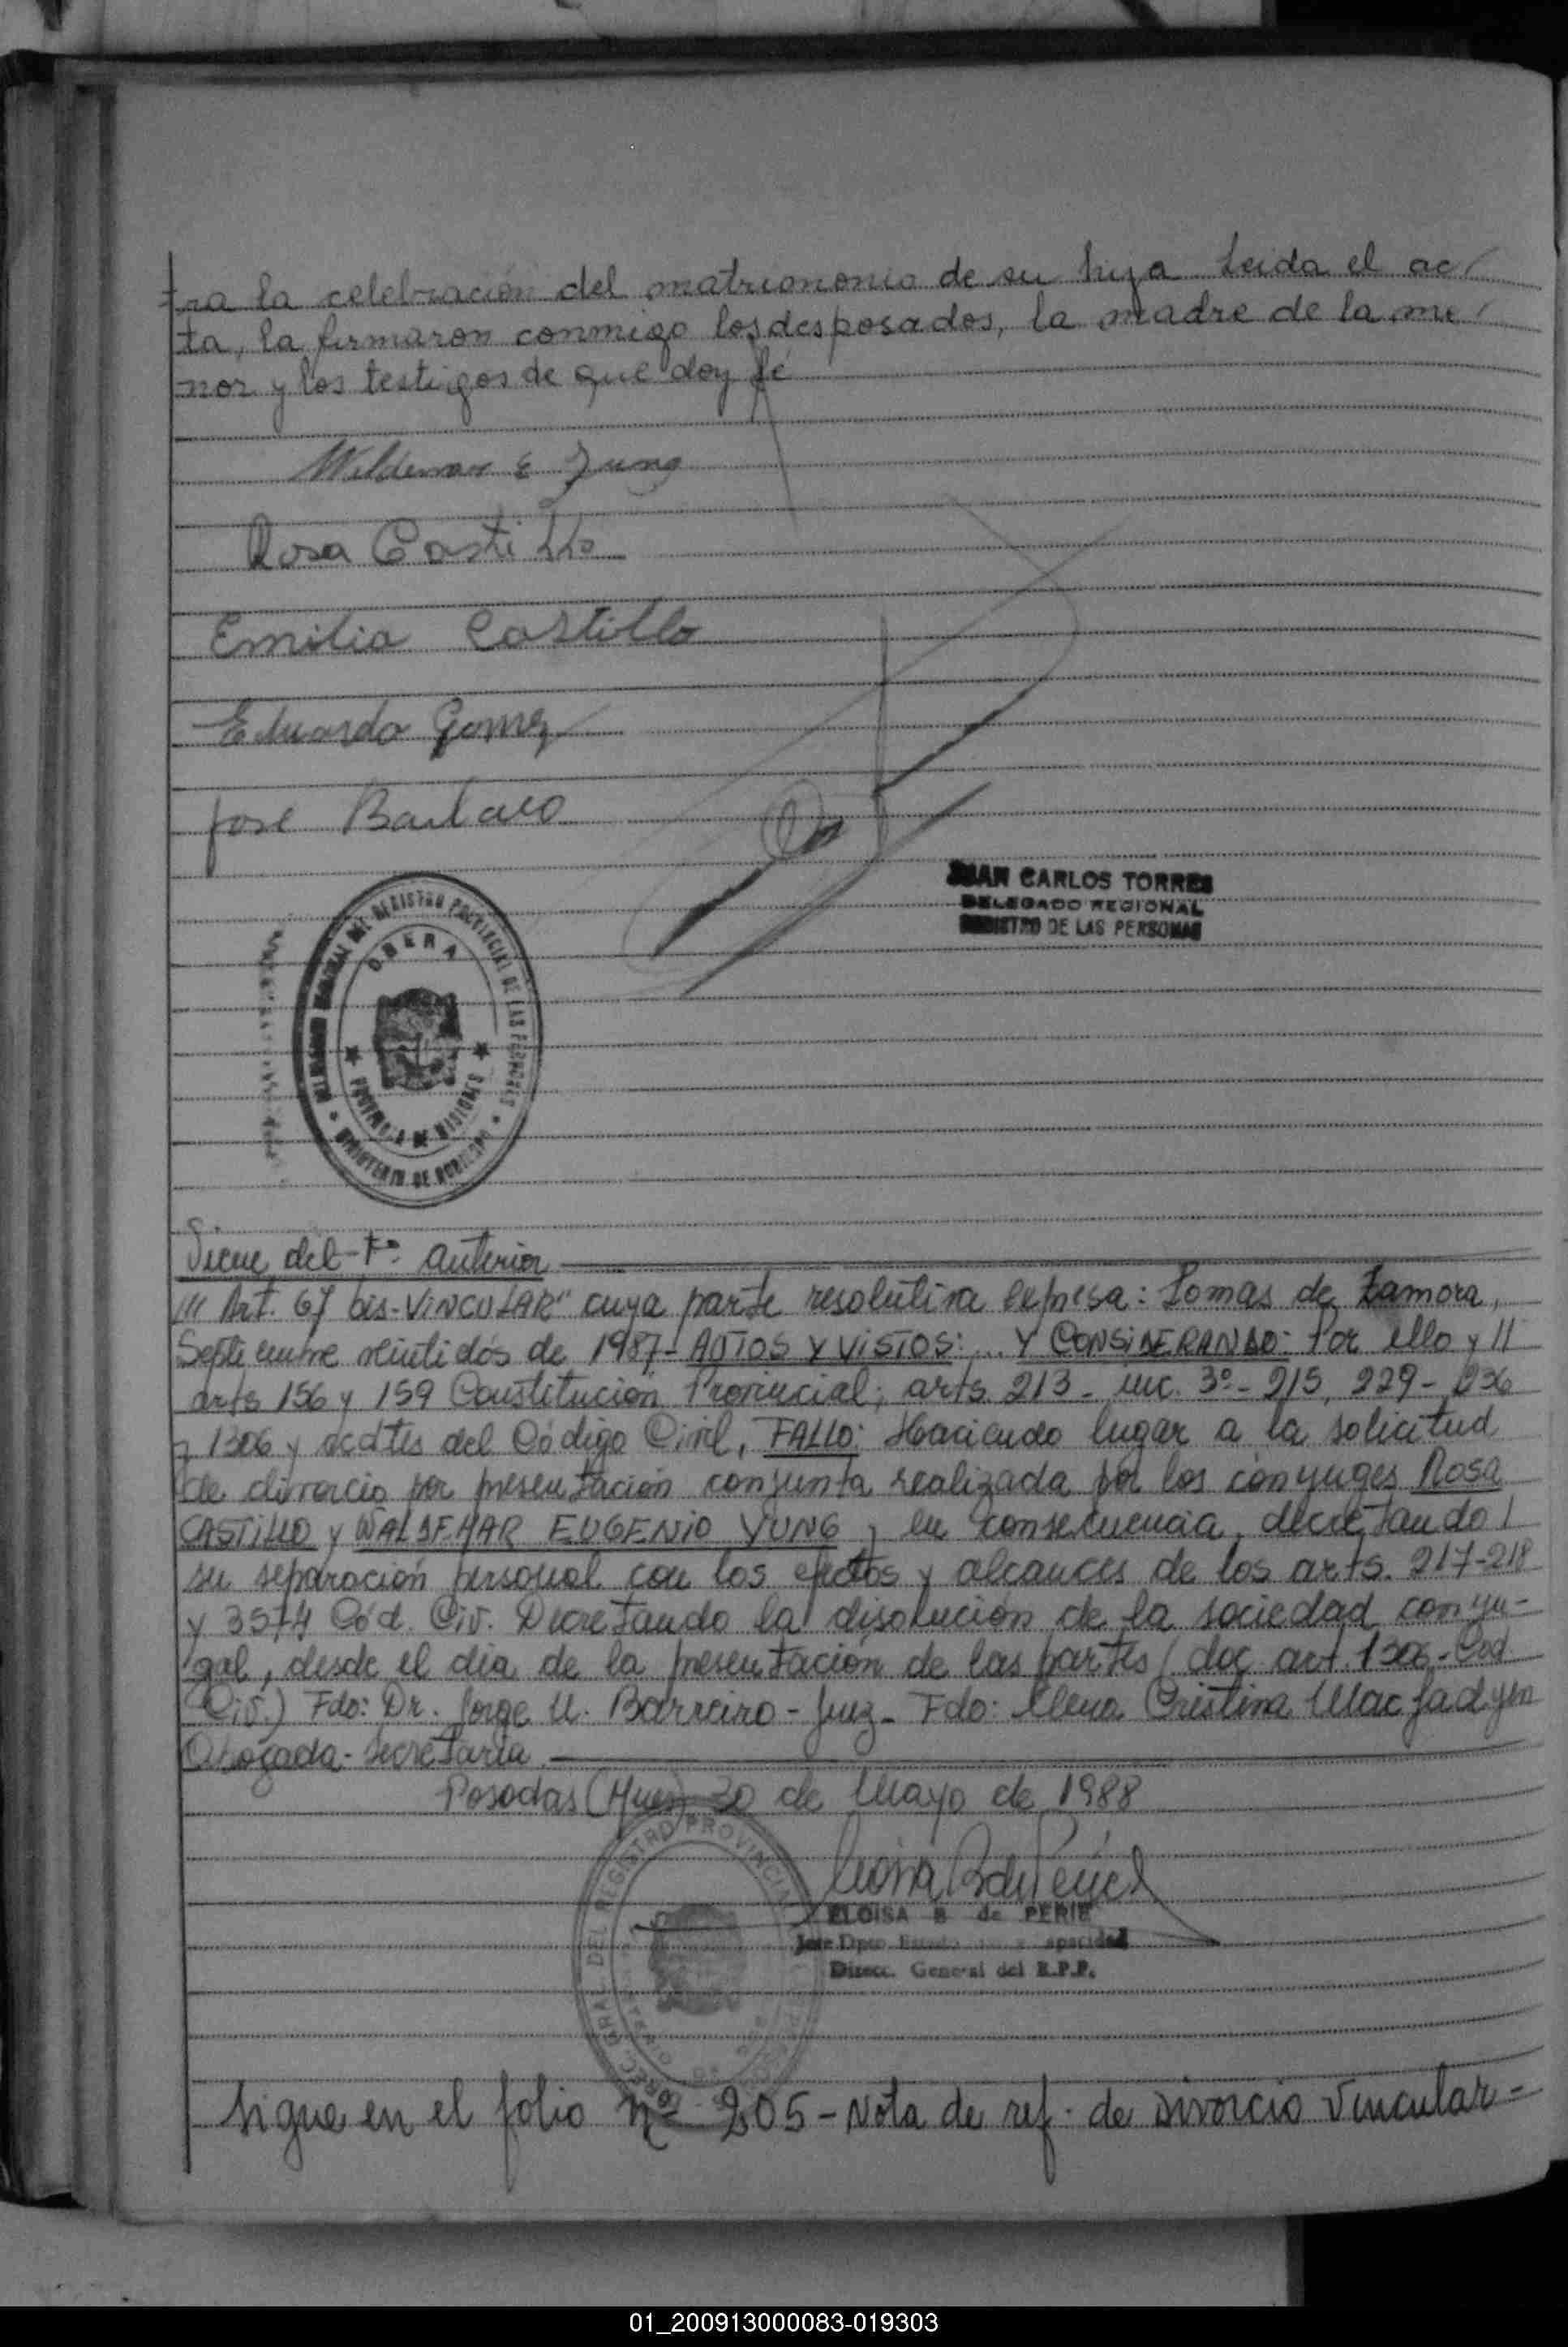 tra la celebración del matrimonio de su hija Leida el ac/
ta, la firmaron conmigo los desposados, la madre de la me/
nor y los testigos de que doy fé
Waldemar E Jung
Rosa Castillo
Emilia Castillo
Eduardo Gomez
José
JUAN CARLOS TORRES
DELEGADO REGIONAL
REGISTRO DE LAS PERSONAS
DEL REGISTRO PROVINCIAL DE LAS PERSONAS
OBERA
PROVINCIA DE MISIONES
MINISTERIO DE GOBIERNO
Viene del Fº anterior
/// Art. 67 bis-VINCULAR" cuya parte resolutiva expresa: Lomas de Zamora,
Septiembre veintidós de 1987- AUTOS Y VISTOS:... Y CONSIDERANDO: Por ello y //
arts 156 y 159 Constitución Provincial; arts. 213- inc. 3º- 215, 229- 236
y 1306 y ccdtes del Código Civil, FALLO: Haciendo lugar a la solicitud
de divorcio por presentación conjunta realizada por los cónyuges ROSA
CASTILLO y WALDEMAR EUGENIO YUNG y en consecuencia, decretando /
su separación personal con los efectos y alcances de los arts. 217-218
y 3574 Cód. Civ. Decretando la disolución de la sociedad conyu-
gal, desde el día de la presentación de las partes (doc. art. 1306- Cod.
Civ.) Fdo: Dr. Jorge M. Barreiro - Juez- Fdo: Elena Cristina Mac Fadyen
Abogada- Secretaria.
Posadas (Mnes) 30 de Mayo de 1988
ELOISA B de PERIE
Jefe Dpto. Estado
Direcc. General del R.P.P.
DIREC. GRAL. DEL REGISTRO PROVINCIAL
Sigue en el folio nº 205 - Nota de ref. de Divorcio Vincular =
01_200913000083-019303